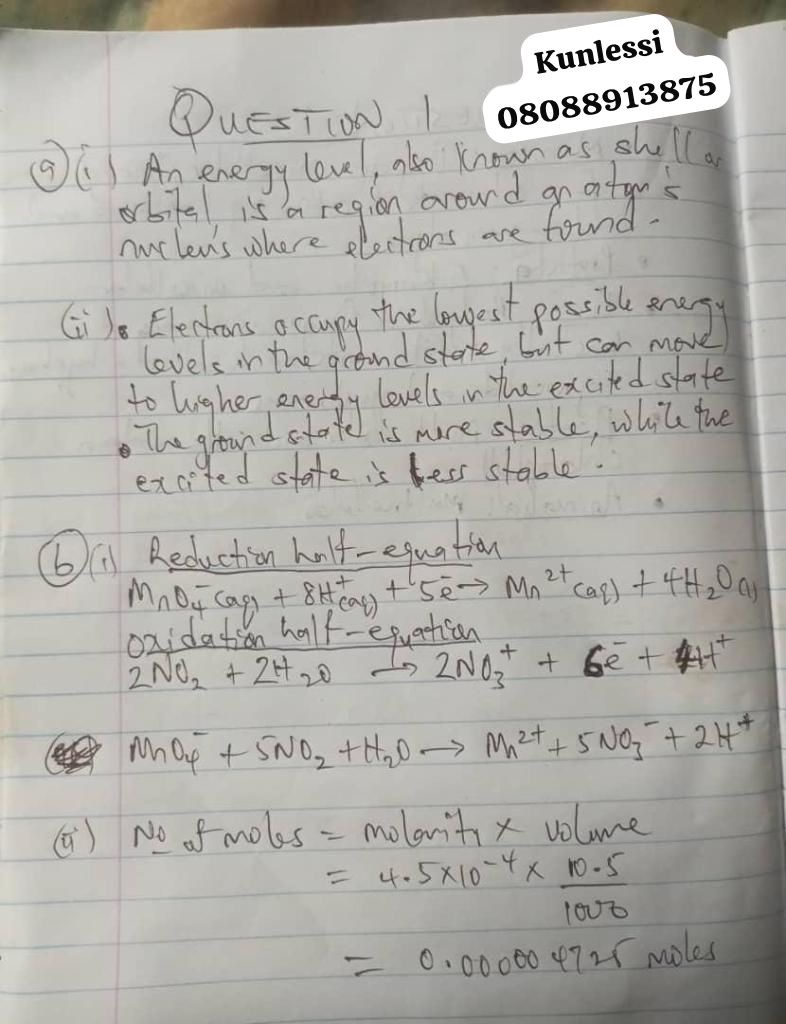 Kunlessi
08088913875
QUESTION 1
(a)(i) An energy level, also known as shell or
orbital, is a region around an atom's
nucleus where electrons are found.
(ii) • Electrons occupy the lowest possible energy
levels in the ground state, but can move
to higher energy levels in the excited state
• The ground state is more stable, while the
excited state is less stable.
(b)(i) Reduction half-equation
MnO₄⁻(aq) + 8H⁺(aq) + 5e⁻ → Mn²⁺(aq) + 4H₂O(l)
oxidation half-equation
2NO₂ + 2H₂O → 2NO₃⁺ + 6e⁻ + 4H⁺
MnO₄⁻ + 5NO₂ + H₂O → Mn²⁺ + 5NO₃⁻ + 2H⁺
(ii) No of moles = molarity × volume
= 4.5×10⁻⁴ × 10.5
1000
= 0.000004725 moles